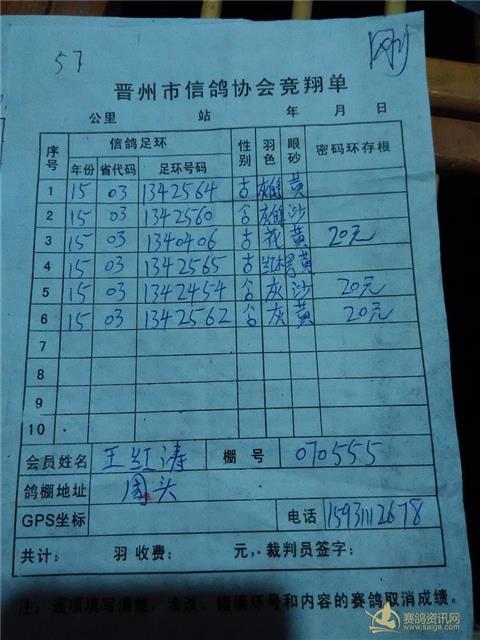 57
刚
晋州市信鸽协会竞翔单
公里 站 年 月 日
序号 信鸽足环 性别 羽色 眼砂 密码环存根
年份 省代码 足环号码
1 15 03 1342564 黄
2 15 03 1342560 沙
3 15 03 1340406 花 黄 20元
4 15 03 1342565 黄
5 15 03 1342454 灰 沙 20元
6 15 03 1342562 灰 黄 20元
7
8
9
10
会员姓名 王红涛 棚号 070555
鸽棚地址 周头
GPS坐标 电话 15931112678
共计: 羽 收费: 元, 裁判员签字:
注: 逐项填写清楚, 涂改、错填环号和内容的赛鸽取消成绩。
赛鸽资讯网
www.saige.com